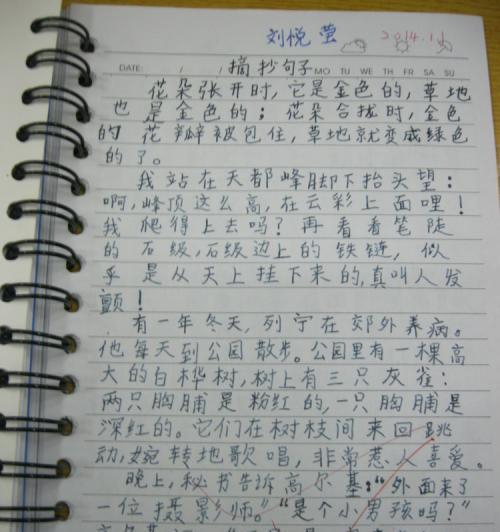 刘悦莹
2014.11
DATE: / / 摘抄句子 MO TU WE TH FR SA SU
花朵张开时,它是金色的,草地
也是金色的;花朵合拢时,金色
的花瓣被包住,草地就变成绿色
的了。
我站在天都峰脚下抬头望:
啊,峰顶这么高,在云彩上面哩!
我爬得上去吗?再看看笔陡
的石级,石级边上的铁链,似
乎是从天上挂下来的,真叫人发
颤!
有一年冬天,列宁在郊外养病。
他每天到公园散步。公园里有一棵高
大的白桦树,树上有三只灰雀:
两只胸脯是粉红的,一只胸脯是
深红的。它们在树枝间来回跳
动,婉转地歌唱,非常惹人喜爱。
晚上,秘书告诉高尔基:“外面来了
一位摄影师。”“是个小男孩吗?”